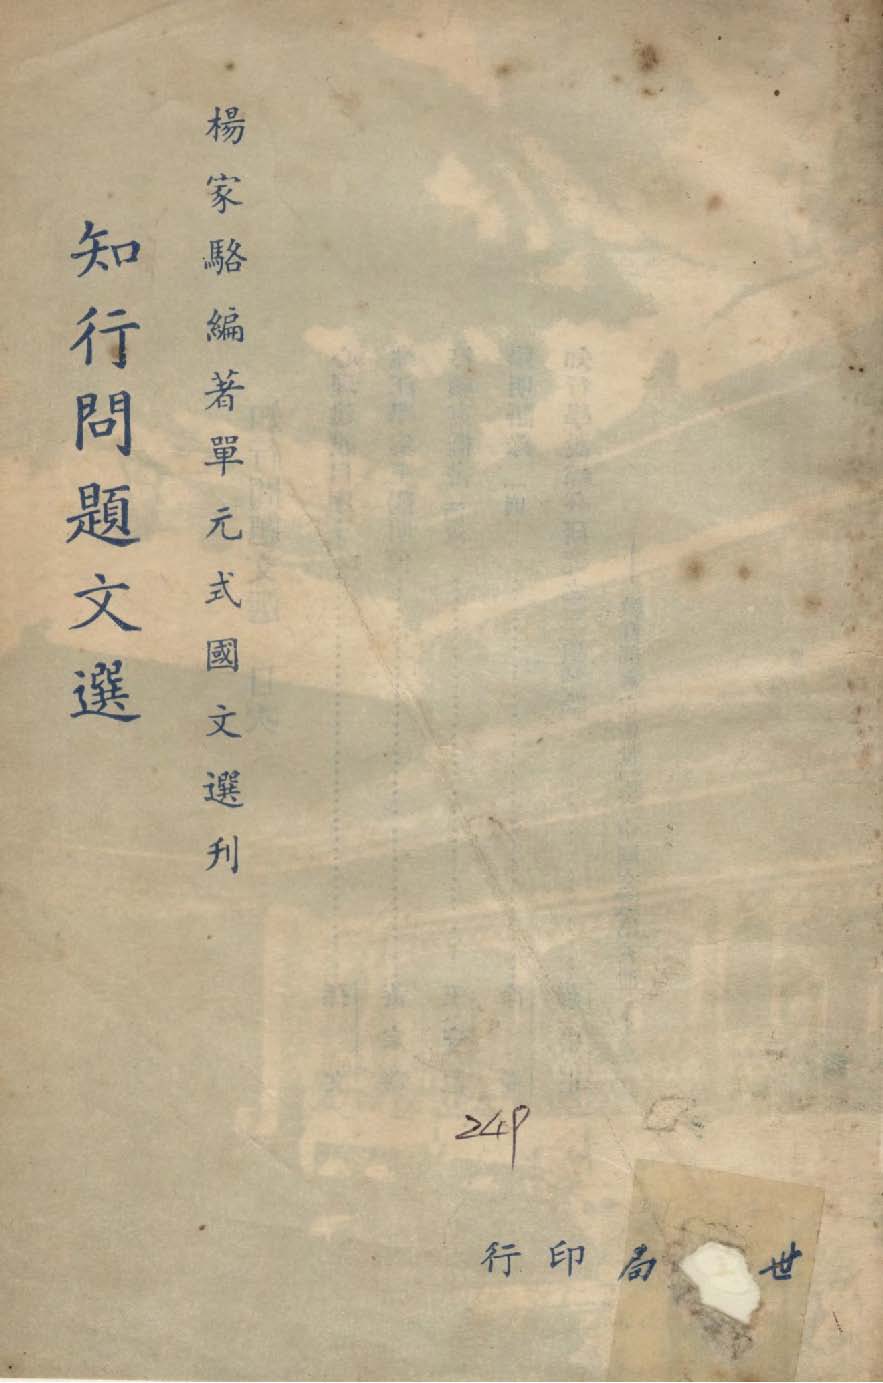 楊家駱編著單元式國文選刊
知行問題文選
249
世局印行